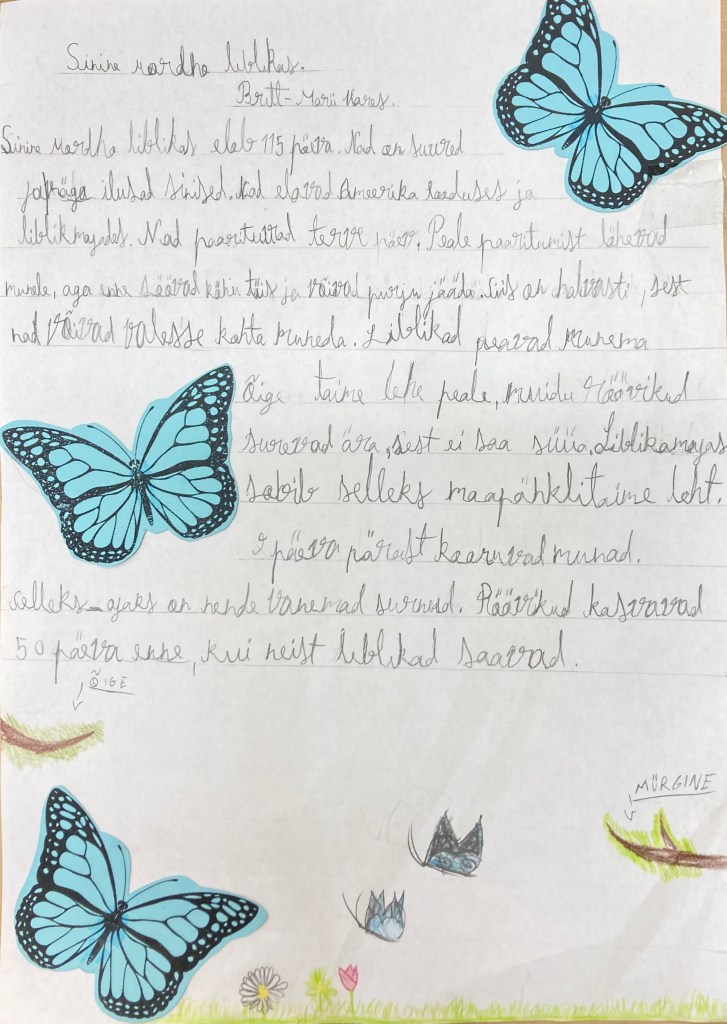 Sinine mordho liblikas.
Britt-Marii Kares.
Sinine mordho liblikas elab 115 päeva. Nad on suured
ja väga ilusad sinised. Nad elavad Ameerika looduses ja
liblikmajades. Nad paarituvad terve päev. Peale paaritumist lähevad
munele, aga enne söövad kõhu täis ja võivad purju jääda. Siis on halvasti, sest
nad võivad valesse kohta muneda. Liblikad peavad munema
õige taime lehe peale, muidu röövikud
surevad ära, sest ei saa süüa. Liblikamajas
sobib selleks maapähklitaime leht.
9 päeva pärast kooruvad munad.
Selleks-ajaks on nende vanemad surnud. Röövikud kasvavad
50 päeva enne, kui neist liblikad saavad.
ÕIGE
MÜRGINE